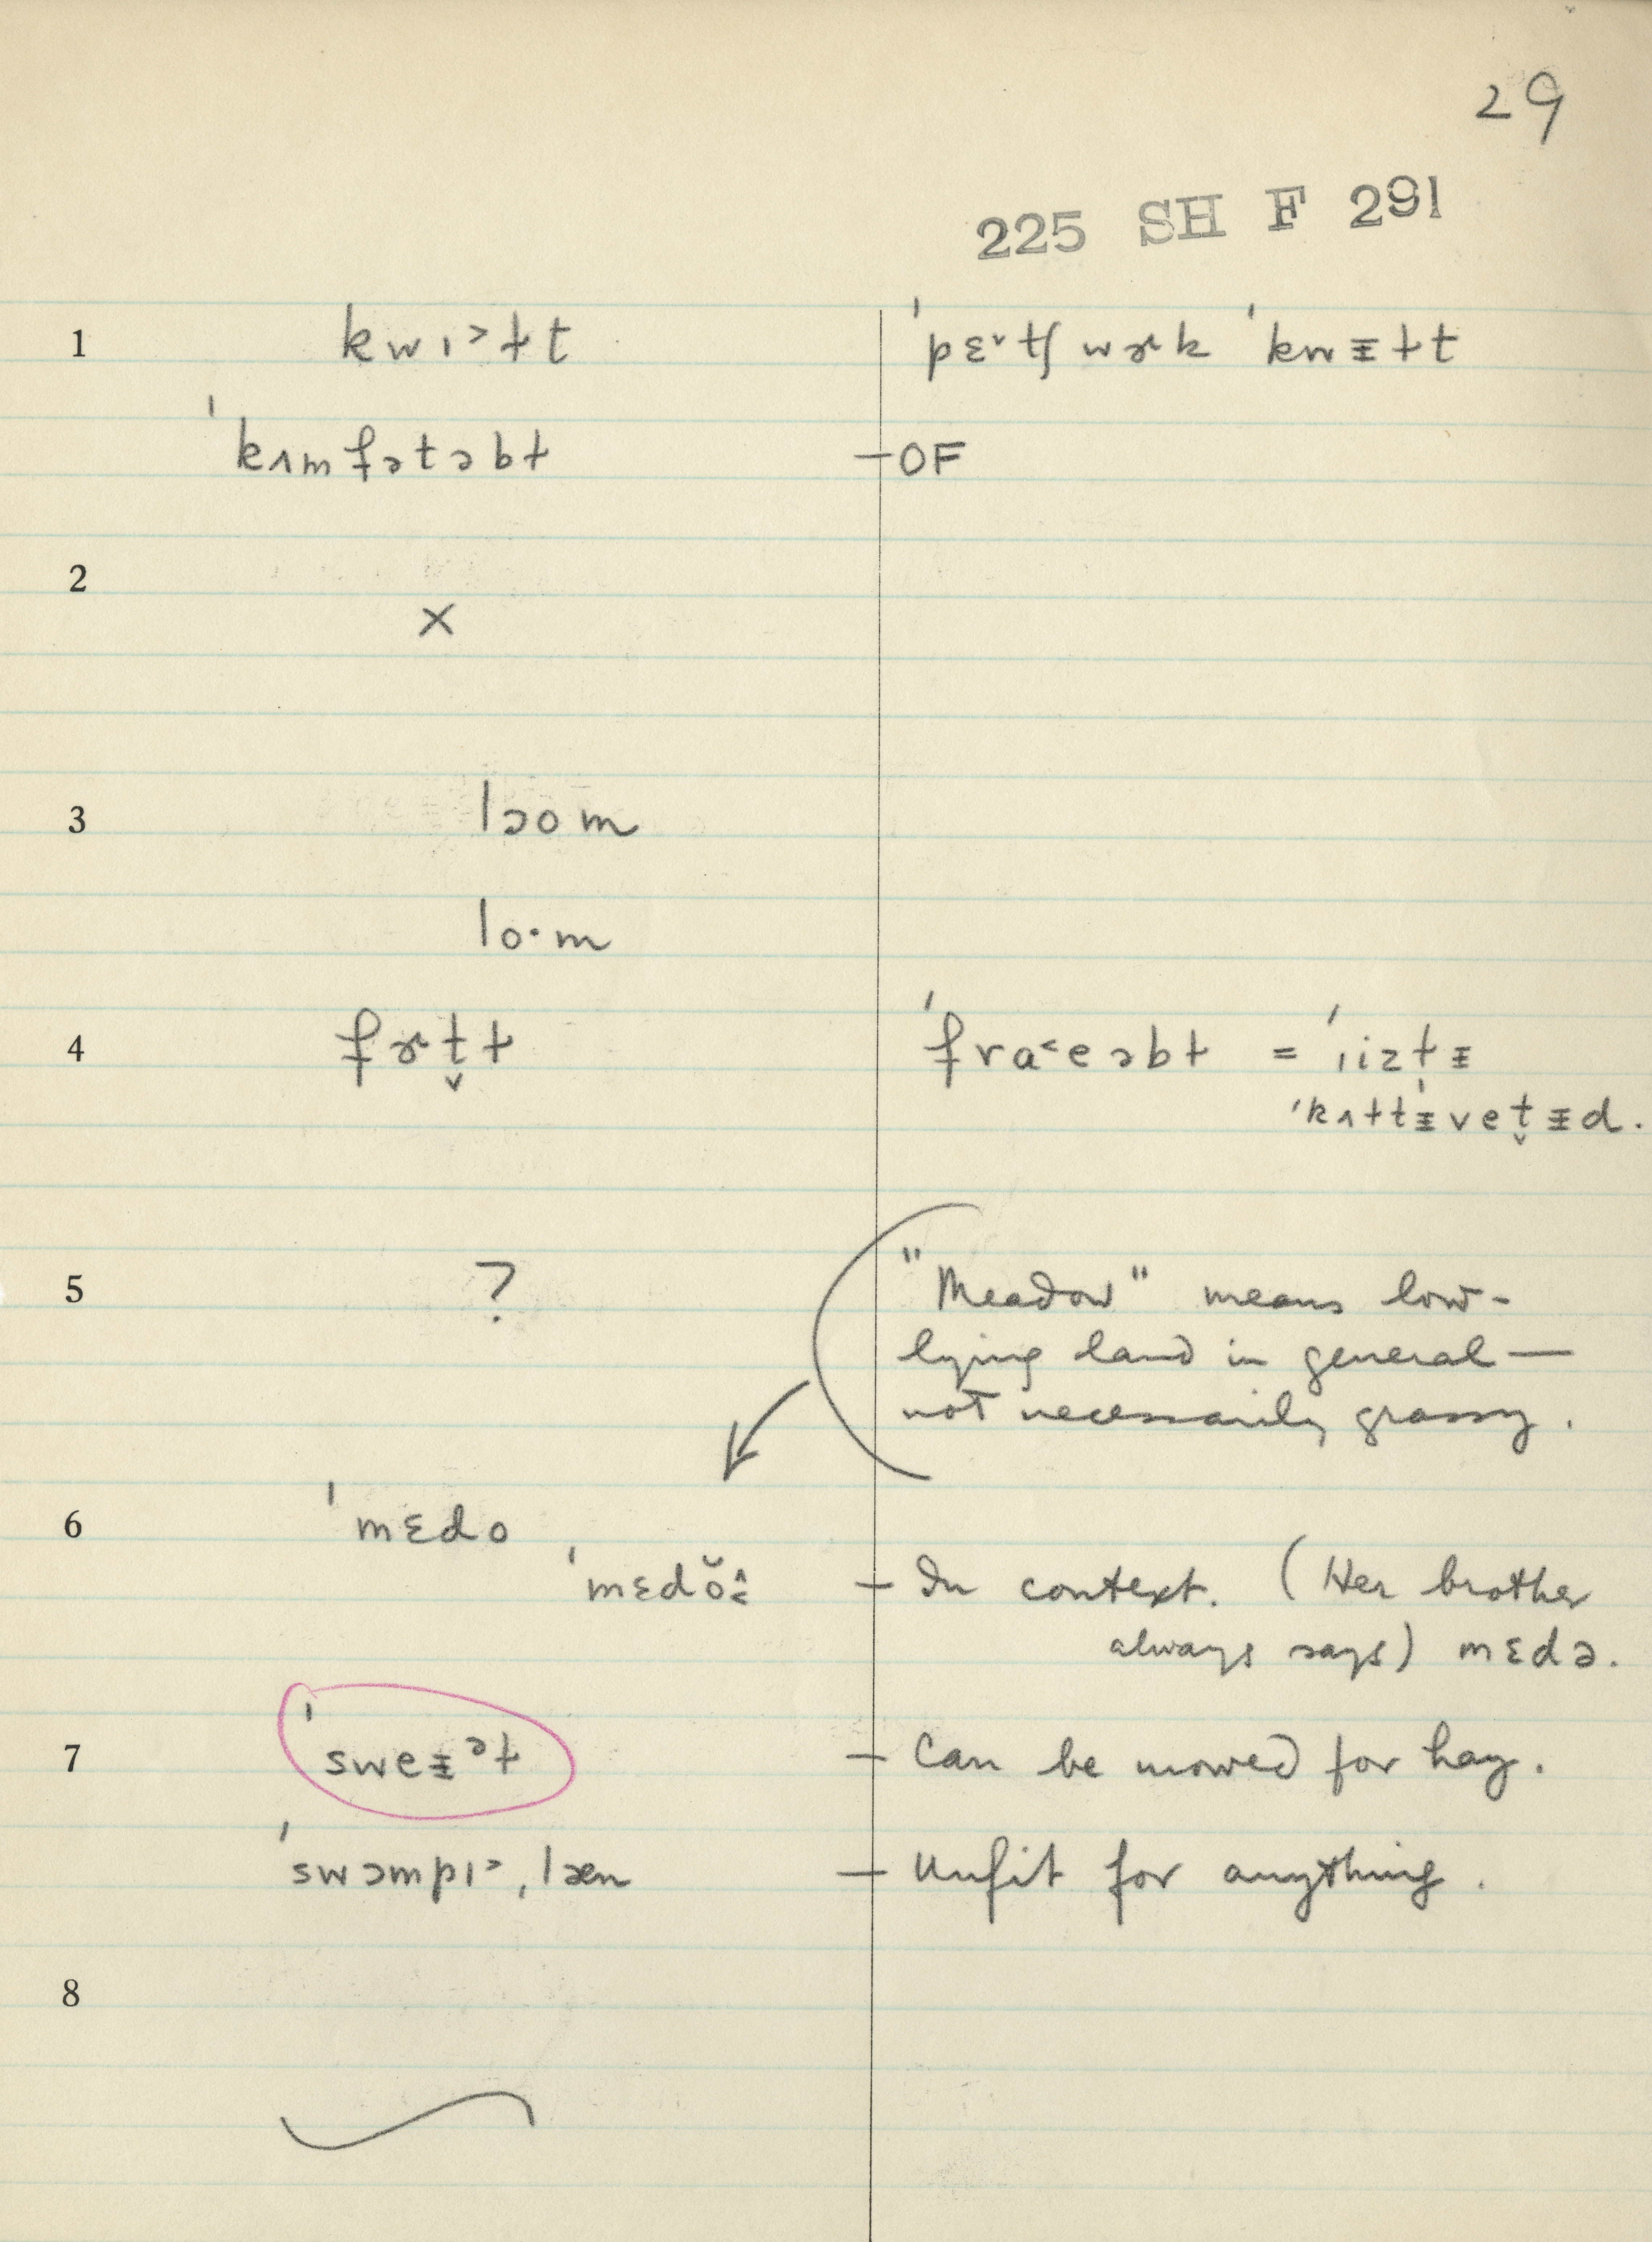 29
225 SH F 291
1 kwɪ˃ɫt ˈpɛ˅tʃwɚk ˈkwᵻɫt
ˈkʌmfətəbɫ — OF
2
×
3 ləom
lo·m
4 fɚt̬ɫ ˈfra˂eəbɫ = ˈiizɫᵻ
ˈkʌɫtᵻˌvet̬ᵻd.
5 ? "Meadow" means low-
lying land in general —
not necessarily grassy.
6 ˈmɛdo
ˈmɛdŏ — In context. (Her brother
always says) mɛdə.
7 ˈsweᵻᵊɫ — Can be mowed for hay.
ˈswɔmpɪ˃ˌlæn — Unfit for anything.
8